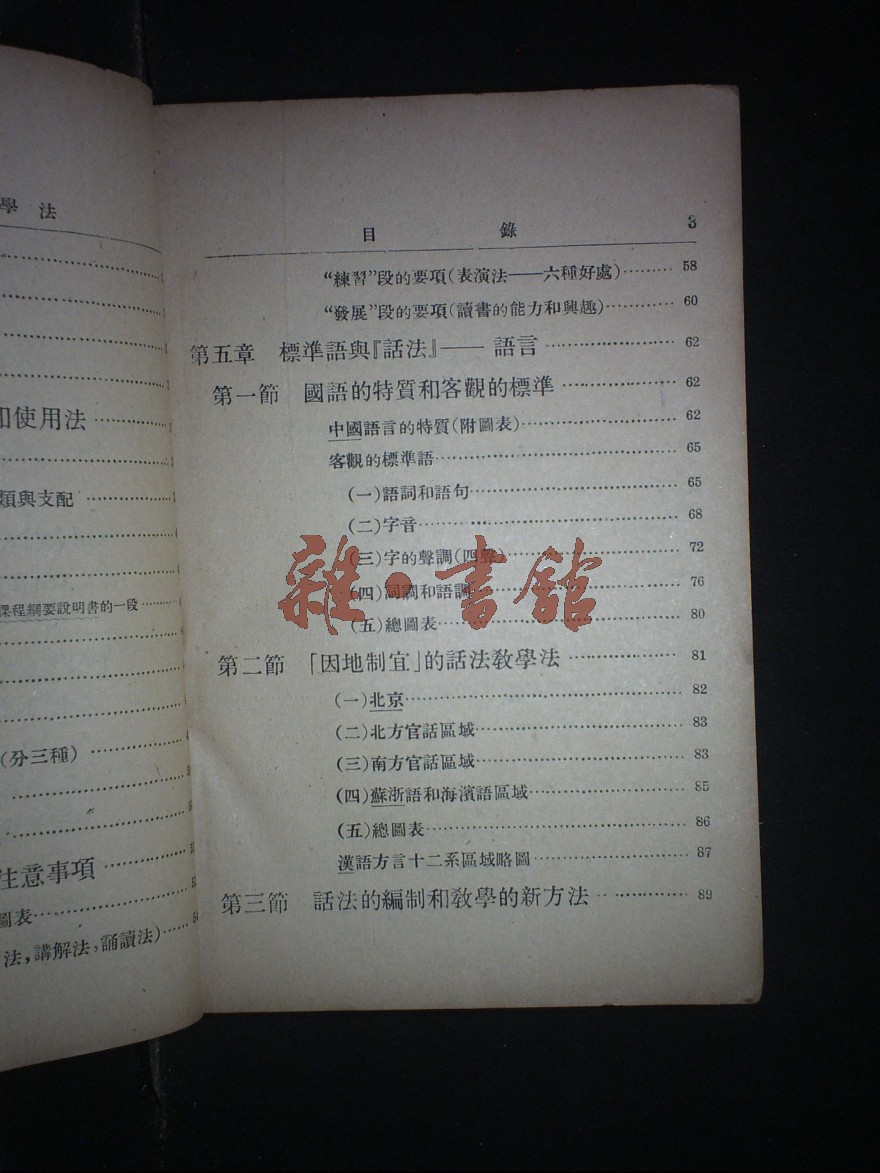 學 法
和使用法
類與支配
課程綱要說明書的一段
(分三種)
注意事項
圖表
法,講解法,誦讀法)
目 錄 3
“練習”段的要項(表演法——六種好處) 58
“發展”段的要項(讀書的能力和興趣) 60
第五章 標準語與『話法』—— 語言 62
第一節 國語的特質和客觀的標準 62
中國語言的特質(附圖表) 62
客觀的標準語 65
(一)語詞和語句 65
(二)字音 68
(三)字的聲調(四聲) 72
(四)詞調和語調 76
(五)總圖表 80
第二節 「因地制宜」的話法教學法 81
(一)北京 82
(二)北方官話區域 83
(三)南方官話區域 83
(四)蘇浙語和海濱語區域 85
(五)總圖表 86
漢語方言十二系區域略圖 87
第三節 話法的編制和教學的新方法 89
雜·書館